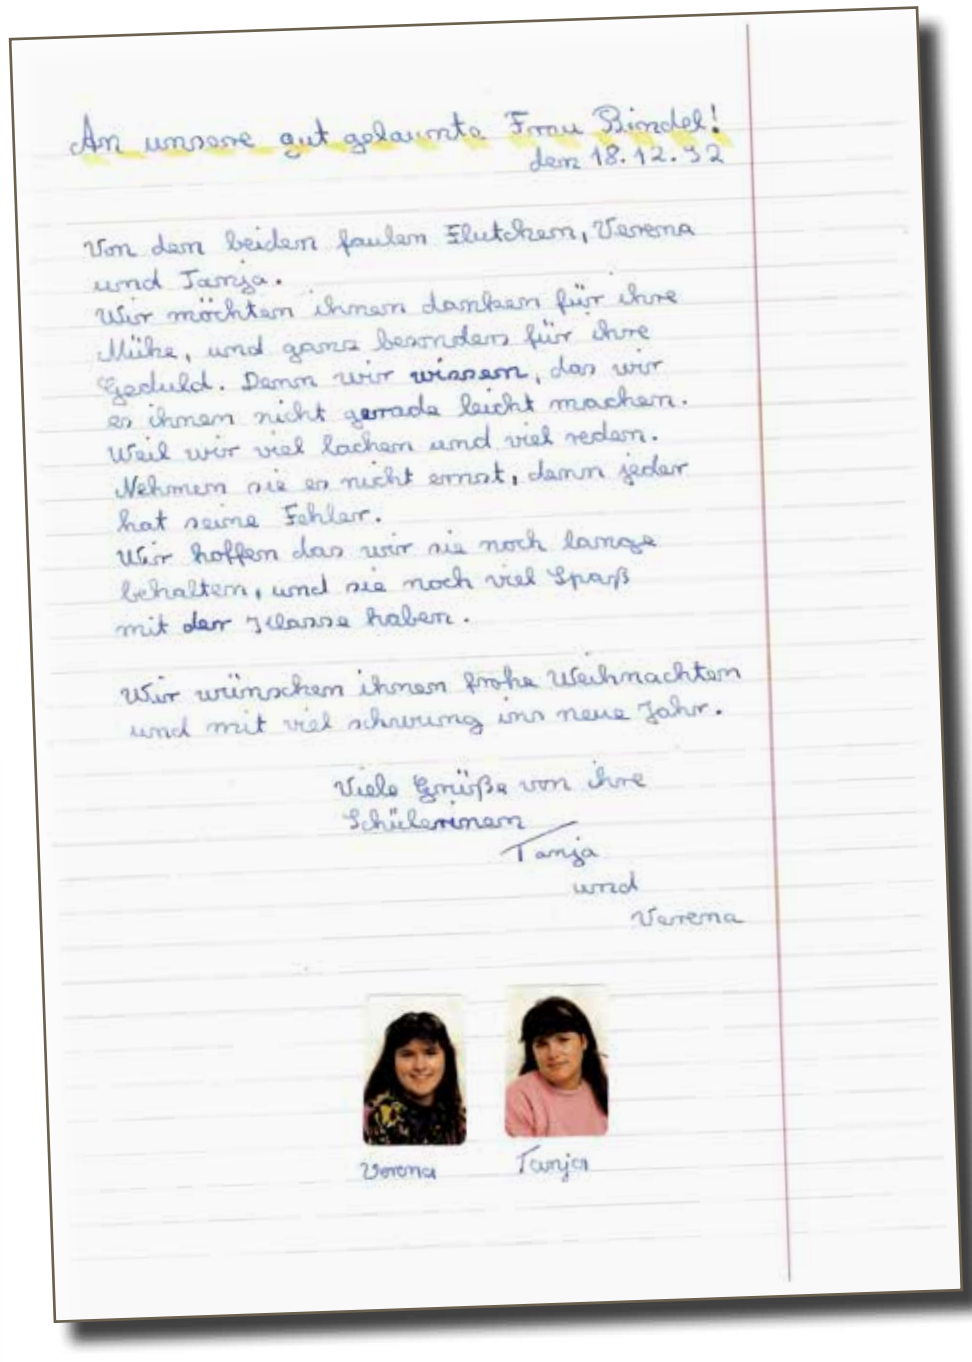 An unsere gut gelaunte Frau Bindel!
den 18.12.92
Von den beiden faulen Flutchen, Verena
und Tanja.
Wir möchten ihnen danken für ihre
Mühe, und ganz besonders für ihre
Geduld. Denn wir wissen, das wir
es ihnen nicht gerade leicht machen.
Weil wir viel lachen und viel reden.
Nehmen sie es nicht ernst, denn jeder
hat seine Fehler.
Wir hoffen das wir sie noch lange
behalten, und sie noch viel Spaß
mit der Klasse haben.
Wir wünschen ihnen frohe Weihnachten
und mit viel schwung ins neue Jahr.
Viele Grüße von ihre
Schülerinen
Tanja
und
Verena
Verena Tanja